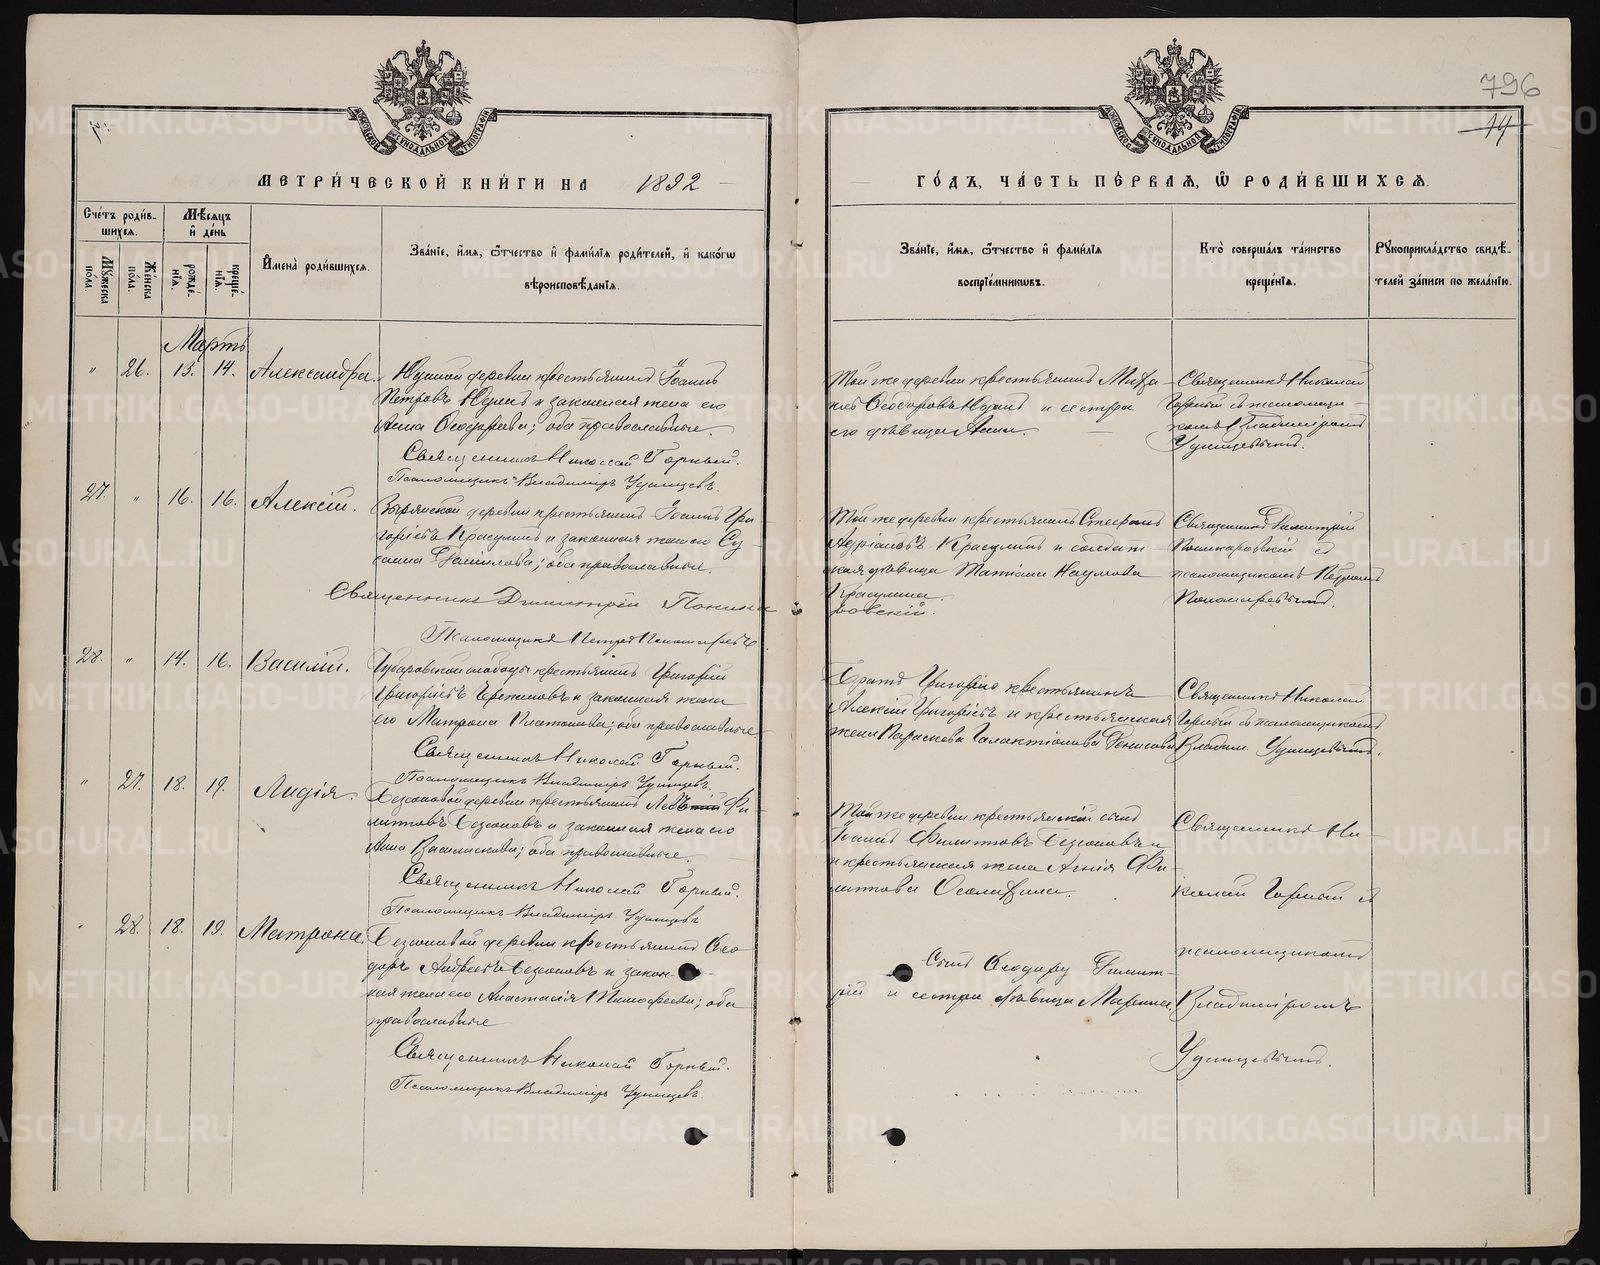 796
14
МЕТРИ́ЧЕСКОЙ КНИ́ГИ НА 1892
ГО́ДЪ, ЧА́СТЬ ПЕ́РВАЯ, Ѽ РОДИ́ВШИХСЯ.
Сче́тъ роди́в-
шихся.
Мѣсяцъ
и̂ де́нь
Му́жеска
по́ла.
Же́нска
по́ла.
рожде́-
нїя.
креще́-
нїя.
И̂мена̀ роди́вшихся.
Зва́нїе, и́мя, ѻ́тчество и̂ фами́лїя роди́телей, и̂ како́гѡ
вѣроисповѣ́данїя.
Зва́нїе, и́мя, ѻ́тчество и̂ фами́лїя
воспрїе́мникѡвъ.
Кто̀ соверша́лъ та́инство
креще́нїя.
Рукоприкла́дство свидѣ́-
телей за́писи по жела́нїю.
Мартъ
" 26. 13. 14. Александра.
деревни крестьянинъ Іоаннъ
Петровъ и законная жена его
Анна Ѳеодорова; оба православные.
Священникъ Николай Горный.
Псаломщикъ Владиміръ Удинцевъ.
Той же деревни крестьянинъ Миха-
илъ Ѳеодоровъ и сестра
его дѣвица Анна.
Священникъ Николай
Горный съ псаломщи-
комъ Владиміромъ
Удинцевымъ.
27. " 16. 16. Алексій.
Зырянской деревни крестьянинъ Іоаннъ Гри-
горьевъ Красулинъ и законная жена его Су-
санна Данилова; оба православные.
Священникъ Димитрій Понома-
ровскій.
Псаломщикъ Петръ Пономаревъ
Той же деревни крестьянинъ Стефанъ
Адріановъ Красулинъ и солдат-
ская дѣвица Татіана Наумова
Красулина.
Священникъ Димитрій
съ
псаломщикомъ Петромъ
Пономаревымъ.
28. " 14. 16. Василій.
Губаровской слободы крестьянинъ Григорій
Григорьевъ и законная жена
его Матрона Платонова; оба православные
Священникъ Николай Горный.
Псаломщикъ Владиміръ Удинцевъ.
Братъ Григорію крестьянинъ
Алексій Григорьевъ и крестьянская
жена Параскева Галактіонова Денисова
Священникъ Николай
Горный съ псаломщикомъ
Владим. Удинцевымъ.
" 27. 18. 19. Лидія.
Безсоновой деревни крестьянинъ Левъ Фи-
липповъ Безсоновъ и законная жена его
Анна Василискова; оба православные.
Священникъ Николай Горный.
Псаломщикъ Владиміръ Удинцевъ
Той же деревни крестьянскій сынъ
Іоаннъ Филипповъ Безсоновъ и
и крестьянская жена Агнія Фи-
липпова
Священникъ Ни-
колай Горный съ
псаломщикомъ
Владиміромъ
Удинцевымъ.
" 28. 18. 19. Матрона.
Безсоновой деревни крестьянинъ Ѳео-
доръ Андреевъ Безсоновъ и закон-
ная жена его Анастасія Тимофеева; оба
православные
Священникъ Николай Горный.
Псаломщикъ Владиміръ Удинцевъ.
Сынъ Ѳеодору Димит-
рій и сестра дѣвица Марина.
METRIKI.GASO-URAL.RU